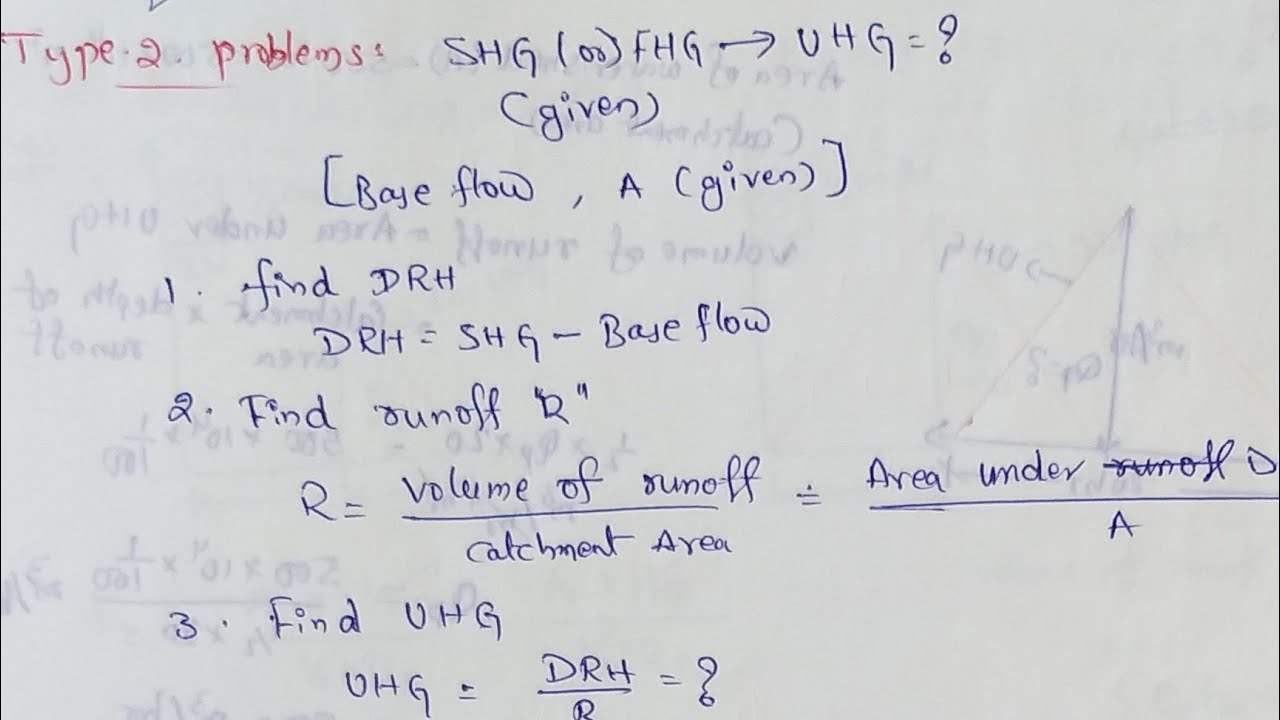 Type.2. problems: SHG (or) FHG → UHG = ?
(given)
[Base flow, A (given)]
1. find DRH
DRH = SHG - Base flow
2. Find runoff "R"
R = Volume of runoff / Catchment Area = Area under runoff D / A
3. Find UHG
UHG = DRH / R = ?